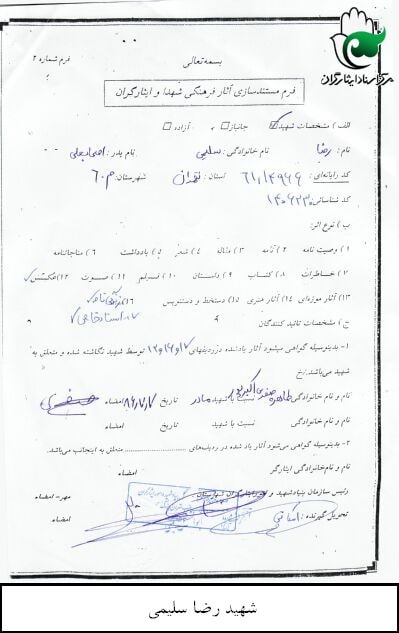 مرکز اسناد ایثارگران
بسمه تعالی
فرم شماره ۲
فرم مستندسازی آثار فرهنگی شهدا و ایثارگران
الف ) مشخصات شهید ☑ جانباز □ آزاده □
نام : رضا نام خانوادگی : سلیمی نام پدر : اسماعیلی
کد رایانه‌ای : استان : تهران شهرستان :
کد شناسائی :
ب ) نوع اثر :
۱ ) وصیت نامه ۲ ) نامه ۳ ) مقاله ۴ ) شعر ۵ ) یادداشت ۶ ) مناجاتنامه
۷ ) خاطرات ۸ ) کتاب ۹ ) داستان ۱۰ ) فیلم ۱۱ ) صوت ۱۲ ) عکس
۱۳ ) آثار موزه‌ای ۱۴ ) آثار هنری ۱۵ ) دستخط و دستنویس ۱۶ ) زندگی نامه
۱۷ - اسناد
ج ) مشخصات تائید کنندگان
۱- بدینوسیله گواهی میشود آثار یاد شده در ردیفهای توسط شهید نگاشته شده و متعلق به
شهید می‌باشد.
نام و نام خانوادگی طاهره نسبت با شهید مادر تاریخ ۸۶/۷/۷ امضاء
نام و نام خانوادگی نسبت با شهید تاریخ امضاء
۲- بدینوسیله گواهی می‌شود آثار یاد شده در ردیف‌های .......... متعلق به اینجانب می‌باشد.
نام و نام‌خانوادگی ایثارگر امضاء
رئیس سازمان بنیاد شهید و امور ایثارگران شهرستان مهر- امضاء
تحویل گیرنده : امضاء
شهید رضا سلیمی